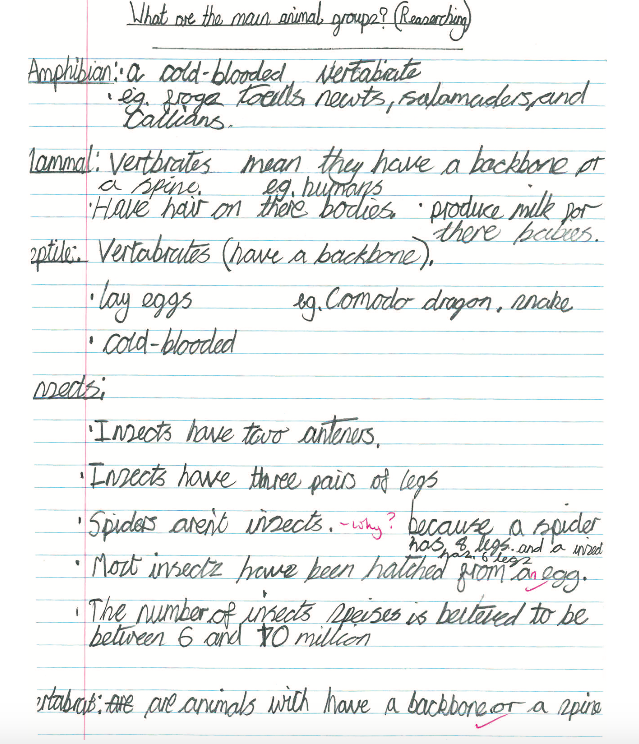 What are the main animal groups? (Reaserching)
Amphibian: a cold-blooded Vertabrate
· eg. frogs toads, newts, salamaders, and
Callians.
Mammal: Vertbrates mean they have a backbone or
a spine. eg. humans
· Have hair on there bodies. · produce milk for
there babies.
eptile: Vertabrates (have a backbone).
· lay eggs eg. Comodo dragon, snake
· cold-blooded
nsects;
· Insects have two anteners.
· Insects have three pairs of legs
· Spiders arent insects. - why? because a spider
has 8 legs. and a insect
has. 6 legs
· Most insects have been hatched from an egg.
· The number of insects speises is beleived to be
between 6 and 10 million
ertabrat: are are animals with have a backbone or a spine